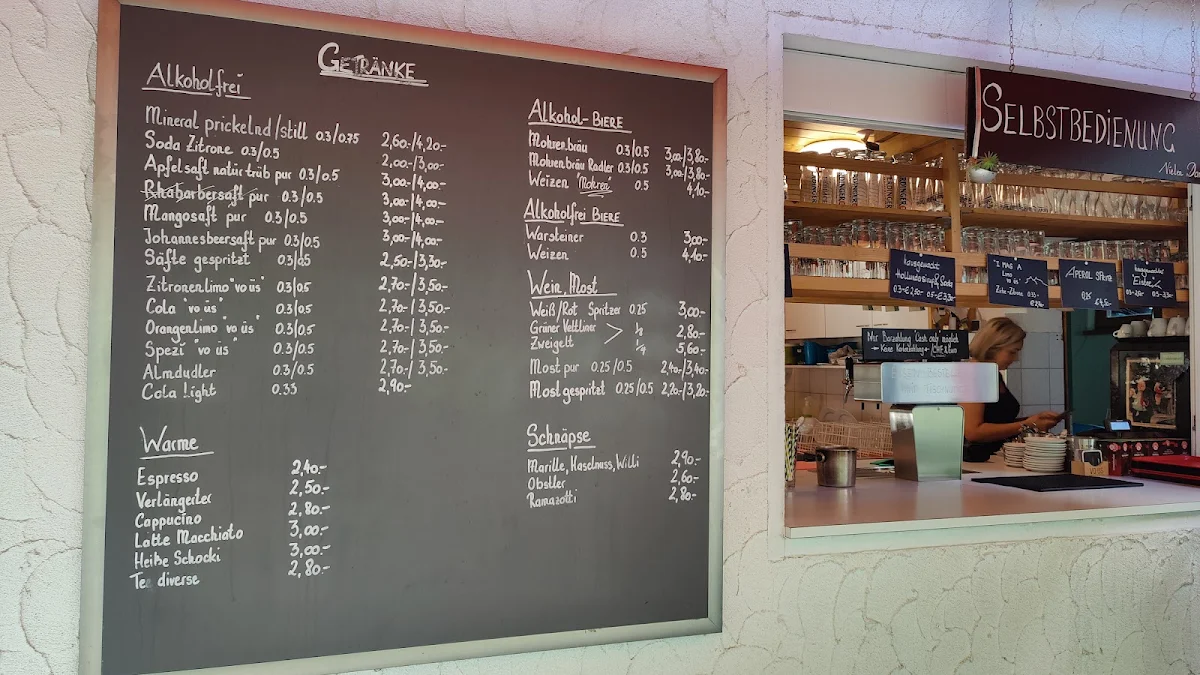 GETRÄNKE
Alkoholfrei
Mineral prickelnd/still 0.3/0.75 2,60.-/4,20.-
Soda Zitrone 0.3/0.5 2,00.-/3,00.-
Apfelsaft natürtrüb pur 0.3/0.5 3,00.-/4,00.-
Rhabarbersaft pur 0.3/0.5 3,00.-/4,00.-
Mangosaft pur 0.3/0.5 3,00.-/4,00.-
Johannesbeersaft pur 0.3/0.5 3,00.-/4,00.-
Säfte gespritzt 0.3/0.5 2,50.-/3,30.-
Zitronenlimo "vo üs" 0.3/0.5 2,70.-/3,50.-
Cola "vo üs" 0.3/0.5 2,70.-/3,50.-
Orangenlimo "vo üs" 0.3/0.5 2,70.-/3,50.-
Spezi "vo üs" 0.3/0.5 2,70.-/3,50.-
Almdudler 0.3/0.5 2,70.-/3,50.-
Cola Light 0.33 2,90.-
Warme
Espresso 2,40.-
Verlängerter 2,50.-
Cappucino 2,80.-
Latte Macchiato 3,00.-
Heiße Schocki 3,00.-
Tee diverse 2,80.-
Alkohol-BIERE
Mohrenbräu 0.3/0.5 3,00/3,80.-
Mohrenbräu Radler 0.3/0.5 3,00/3,80.-
Weizen "Mohren" 0.5 4,10.-
Alkoholfrei BIERE
Warsteiner 0.3 3,00.-
Weizen 0.5 4,10.-
Wein, Most
Weiß/Rot Spritzer 0.25 3,00.-
Grüner Veltliner > 1/8 2,80.-
Zweigelt 1/4 5,60.-
Most pur 0.25/0.5 2,40.-/3,40.-
Most gespritzt 0.25/0.5 2,20.-/3,20.-
Schnäpse
Marille, Haselnuss, Willi 2,90.-
Obstler 2,60.-
Ramazotti 2,80.-
SELBSTBEDIENUNG
Vielen Dan
hausgemacht
0.3-€ 2,50.- 0.5-€ 3,30
"I MAG A
Limo
vo üs"
APEROL SPRITZ
hausgemachter
Eistee
Nur Barzahlung "Cash only" möglich
Keine Kartenzahlung